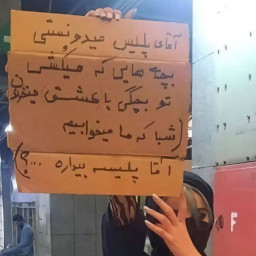 آقای پلیس میدونستی
بچه هایی که میکشتی
تو بچگی با عشق میخوندن
(شبا که ما میخوابیم
آقا پلیسه بیداره ...؟)
F